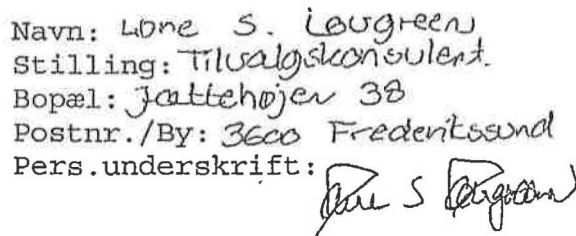 Navn: Lone S. Lougreen
Stilling: Tilvalgskonsulent.
Bopæl: Jættehøjen 38
Postnr./By: 3600 Frederikssund
Pers.underskrift: Lone S Lougreen